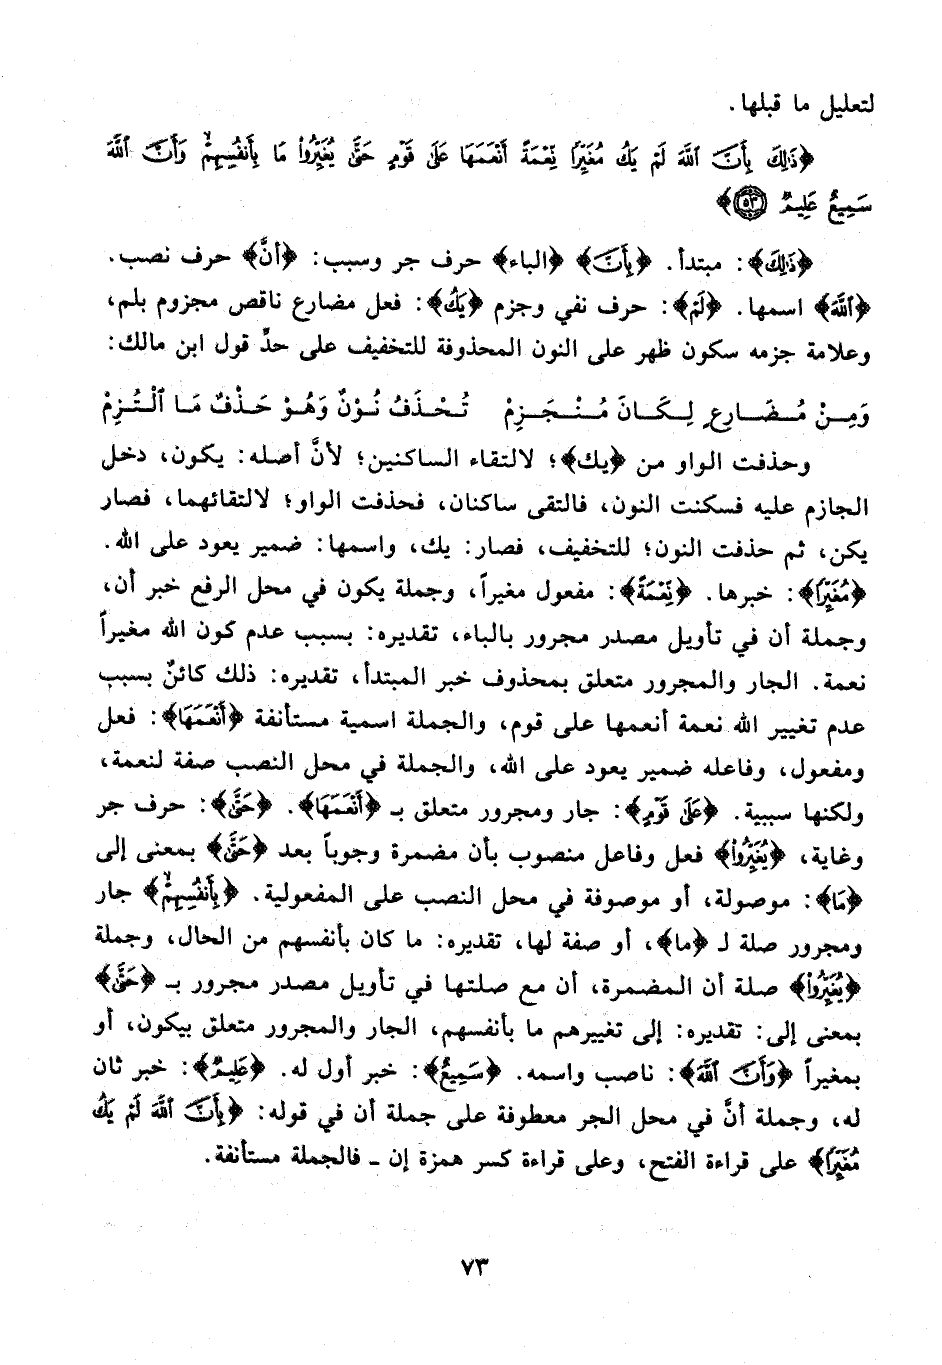 لتعليل ما قبلها.
﴿ذَٰلِكَ بِأَنَّ ٱللَّهَ لَمْ يَكُ مُغَيِّرًا نِّعْمَةً أَنْعَمَهَا عَلَىٰ قَوْمٍ حَتَّىٰ يُغَيِّرُوا۟ مَا بِأَنفُسِهِمْ ۙ وَأَنَّ ٱللَّهَ
سَمِيعٌ عَلِيمٌ ٥٣﴾
﴿ذَٰلِكَ﴾: مبتدأ. ﴿بِأَنَّ﴾ ﴿الباء﴾ حرف جر وسبب: ﴿أنَّ﴾ حرف نصب.
﴿ٱللَّهَ﴾ اسمها. ﴿لَمْ﴾: حرف نفي وجزم ﴿يَكُ﴾: فعل مضارع ناقص مجزوم بلم،
وعلامة جزمه سكون ظهر على النون المحذوفة للتخفيف على حدِّ قول ابن مالك:
وَمِنْ مُضَارِعٍ لِكَانَ مُنْجَزِمْ تُحْذَفُ نُوْنٌ وَهُوَ حَذْفٌ مَا ٱلْتُزِمْ
وحذفت الواو من ﴿يك﴾؛ لالتقاء الساكنين؛ لأنَّ أصله: يكون، دخل
الجازم عليه فسكنت النون، فالتقى ساكنان، فحذفت الواو؛ لالتقائهما، فصار
يكن، ثم حذفت النون؛ للتخفيف، فصار: يك، واسمها: ضمير يعود على الله.
﴿مُغَيِّرًا﴾: خبرها. ﴿نِّعْمَةً﴾: مفعول مغيراً، وجملة يكون في محل الرفع خبر أن،
وجملة أن في تأويل مصدر مجرور بالباء، تقديره: بسبب عدم كون الله مغيراً
نعمة. الجار والمجرور متعلق بمحذوف خبر المبتدأ، تقديره: ذلك كائنٌ بسبب
عدم تغيير الله نعمة أنعمها على قوم، والجملة اسمية مستأنفة ﴿أَنْعَمَهَا﴾: فعل
ومفعول، وفاعله ضمير يعود على الله، والجملة في محل النصب صفة لنعمة،
ولكنها سببية. ﴿عَلَىٰ قَوْمٍ﴾: جار ومجرور متعلق بـ ﴿أَنْعَمَهَا﴾. ﴿حَتَّىٰ﴾: حرف جر
وغاية، ﴿يُغَيِّرُوا۟﴾ فعل وفاعل منصوب بأن مضمرة وجوباً بعد ﴿حَتَّىٰ﴾ بمعنى إلى
﴿مَا﴾: موصولة، أو موصوفة في محل النصب على المفعولية. ﴿بِأَنفُسِهِمْ ۙ﴾ جار
ومجرور صلة لـ ﴿ما﴾، أو صفة لها، تقديره: ما كان بأنفسهم من الحال، وجملة
﴿يُغَيِّرُوا۟﴾ صلة أن المضمرة، أن مع صلتها في تأويل مصدر مجرور بـ ﴿حَتَّىٰ﴾
بمعنى إلى: تقديره: إلى تغييرهم ما بأنفسهم، الجار والمجرور متعلق بيكون، أو
بمغيراً ﴿وَأَنَّ ٱللَّهَ﴾: ناصب واسمه. ﴿سَمِيعٌ﴾: خبر أول له. ﴿عَلِيمٌ﴾: خبر ثان
له، وجملة أنَّ في محل الجر معطوفة على جملة أن في قوله: ﴿بِأَنَّ ٱللَّهَ لَمْ يَكُ
مُغَيِّرًا﴾ على قراءة الفتح، وعلى قراءة كسر همزة إن ـ فالجملة مستأنفة.
٧٣